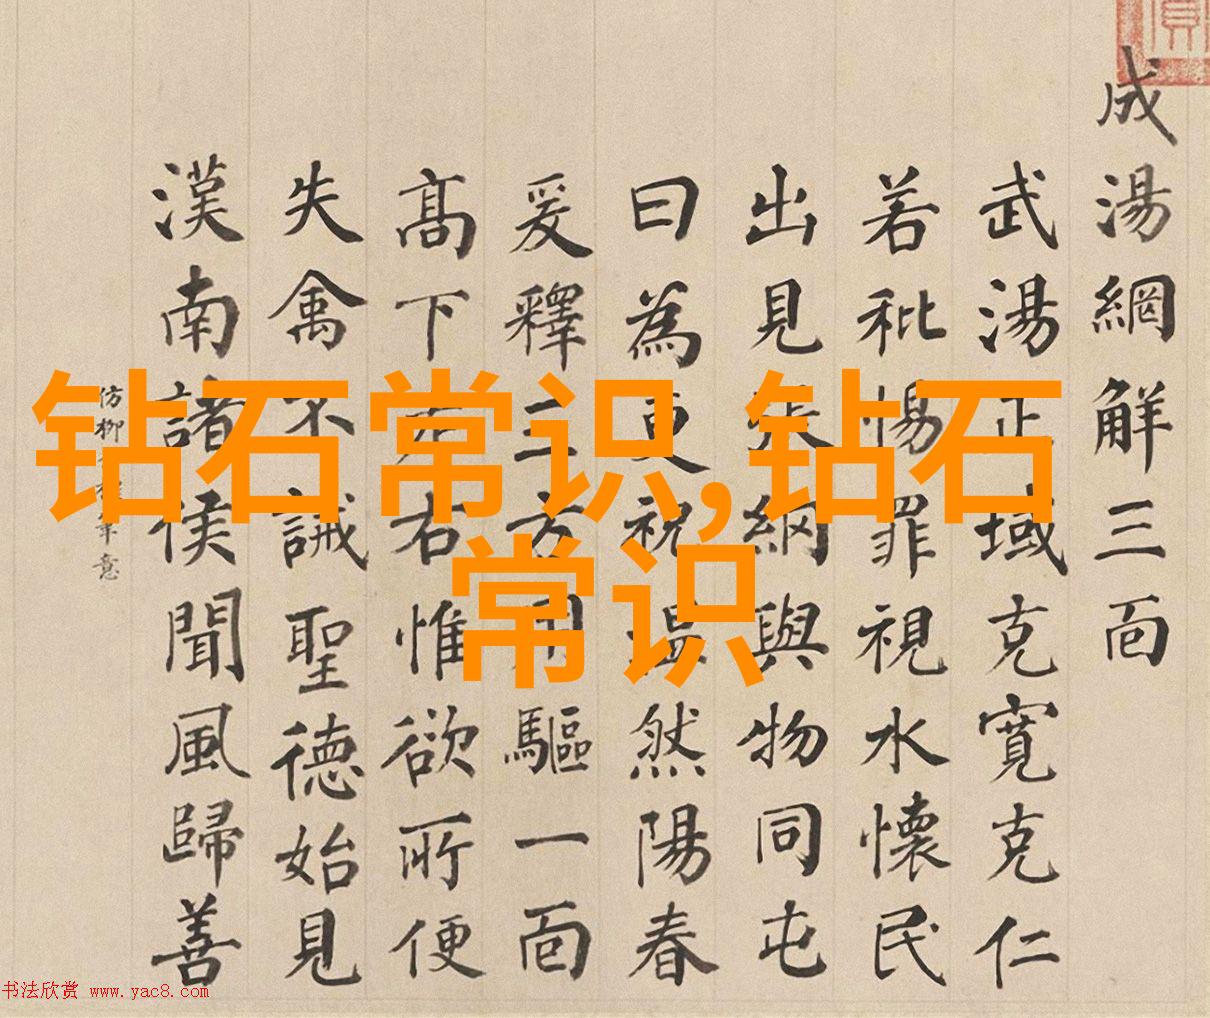 成湯網解三面
武湯正域克寬克仁
若秕惕罪視水懷民
出見張網與物同屯
曰為更祝溫然陽春
爰釋三方用驅一面
高下左右惟欲所便
失禽不誡聖德始見
漢南諸侯聞風歸善
仿柳筆意
钻石常识,钻石
常识
书法欣赏 www.yac8.com